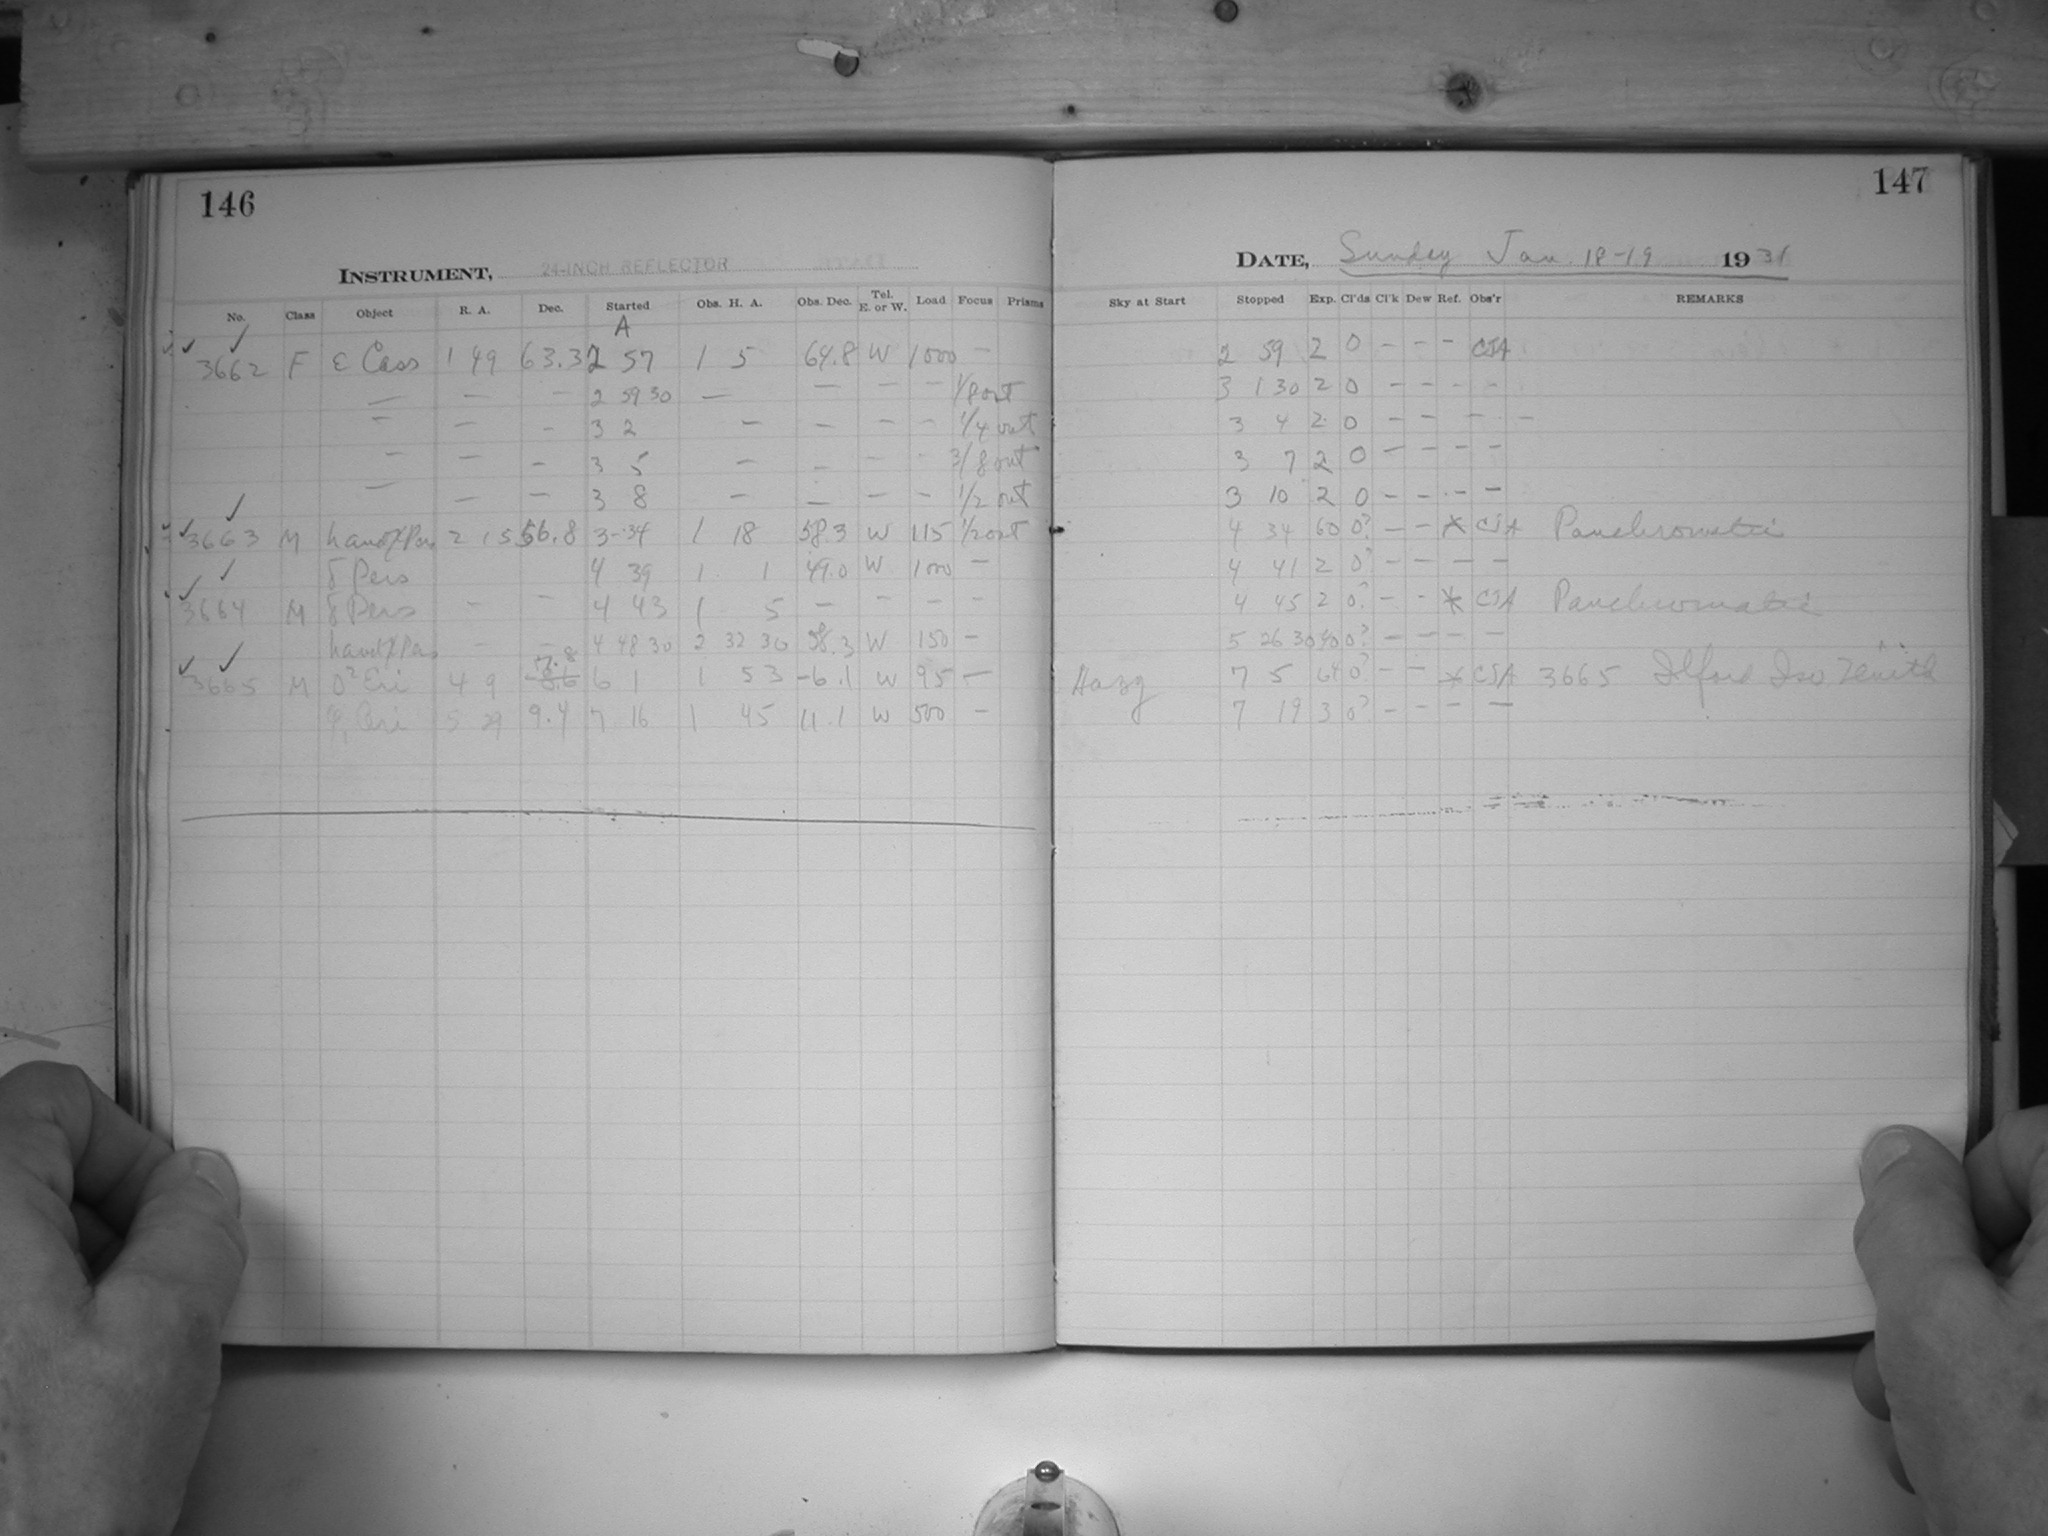 146
INSTRUMENT, 24-INCH REFLECTOR
No. Class Object R. A. Dec. Started Obs. H. A. Obs. Dec. Tel. E. or W. Load Focus Prisms
A
✓ ✓ 3662 F ε Cass 1 49 63.3 2 57 1 5 64.8 W 1000 —
— — — 2 59 30 — — — — 1/8 out
— — — 3 2 — — — — 1/4 out
— — — 3 5 — — — — 3/8 out
— — — 3 8 — — — — 1/2 out
✓ ✓ 3663 M h and χ Pers 2 15 56.8 3-34 1 18 58.3 W 115 1/2 out
✓ δ Pers 4 39 1 1 49.0 W 1000 —
✓ 3664 M δ Pers — — 4 43 1 5 — — — —
h and χ Pers — — 4 48 30 2 32 30 58.3 W 150 —
✓ ✓ 3665 M o² Eri 4 9 -7.8 6 1 1 53 -6.1 W 95 —
φ, Ori 5 29 9.4 7 16 1 45 11.1 W 500 —
147
DATE, Sunday Jan. 18-19 1931
Sky at Start Stopped Exp. Cl'ds Cl'k Dew Ref. Obs'r REMARKS
2 59 2 0 — — — CSA
3 1 30 2 0 — — — —
3 4 2 0 — — — —
3 7 2 0 — — — —
3 10 2 0 — — — —
4 34 60 0? — — * CSA Panchromatic
4 41 2 0? — — — —
4 45 2 0? — — * CSA Panchromatic
5 26 30 40 0? — — — —
Hazy 7 5 64 0? — — * CSA 3665 Ilford Iso Zenith
7 19 3 0? — — — —